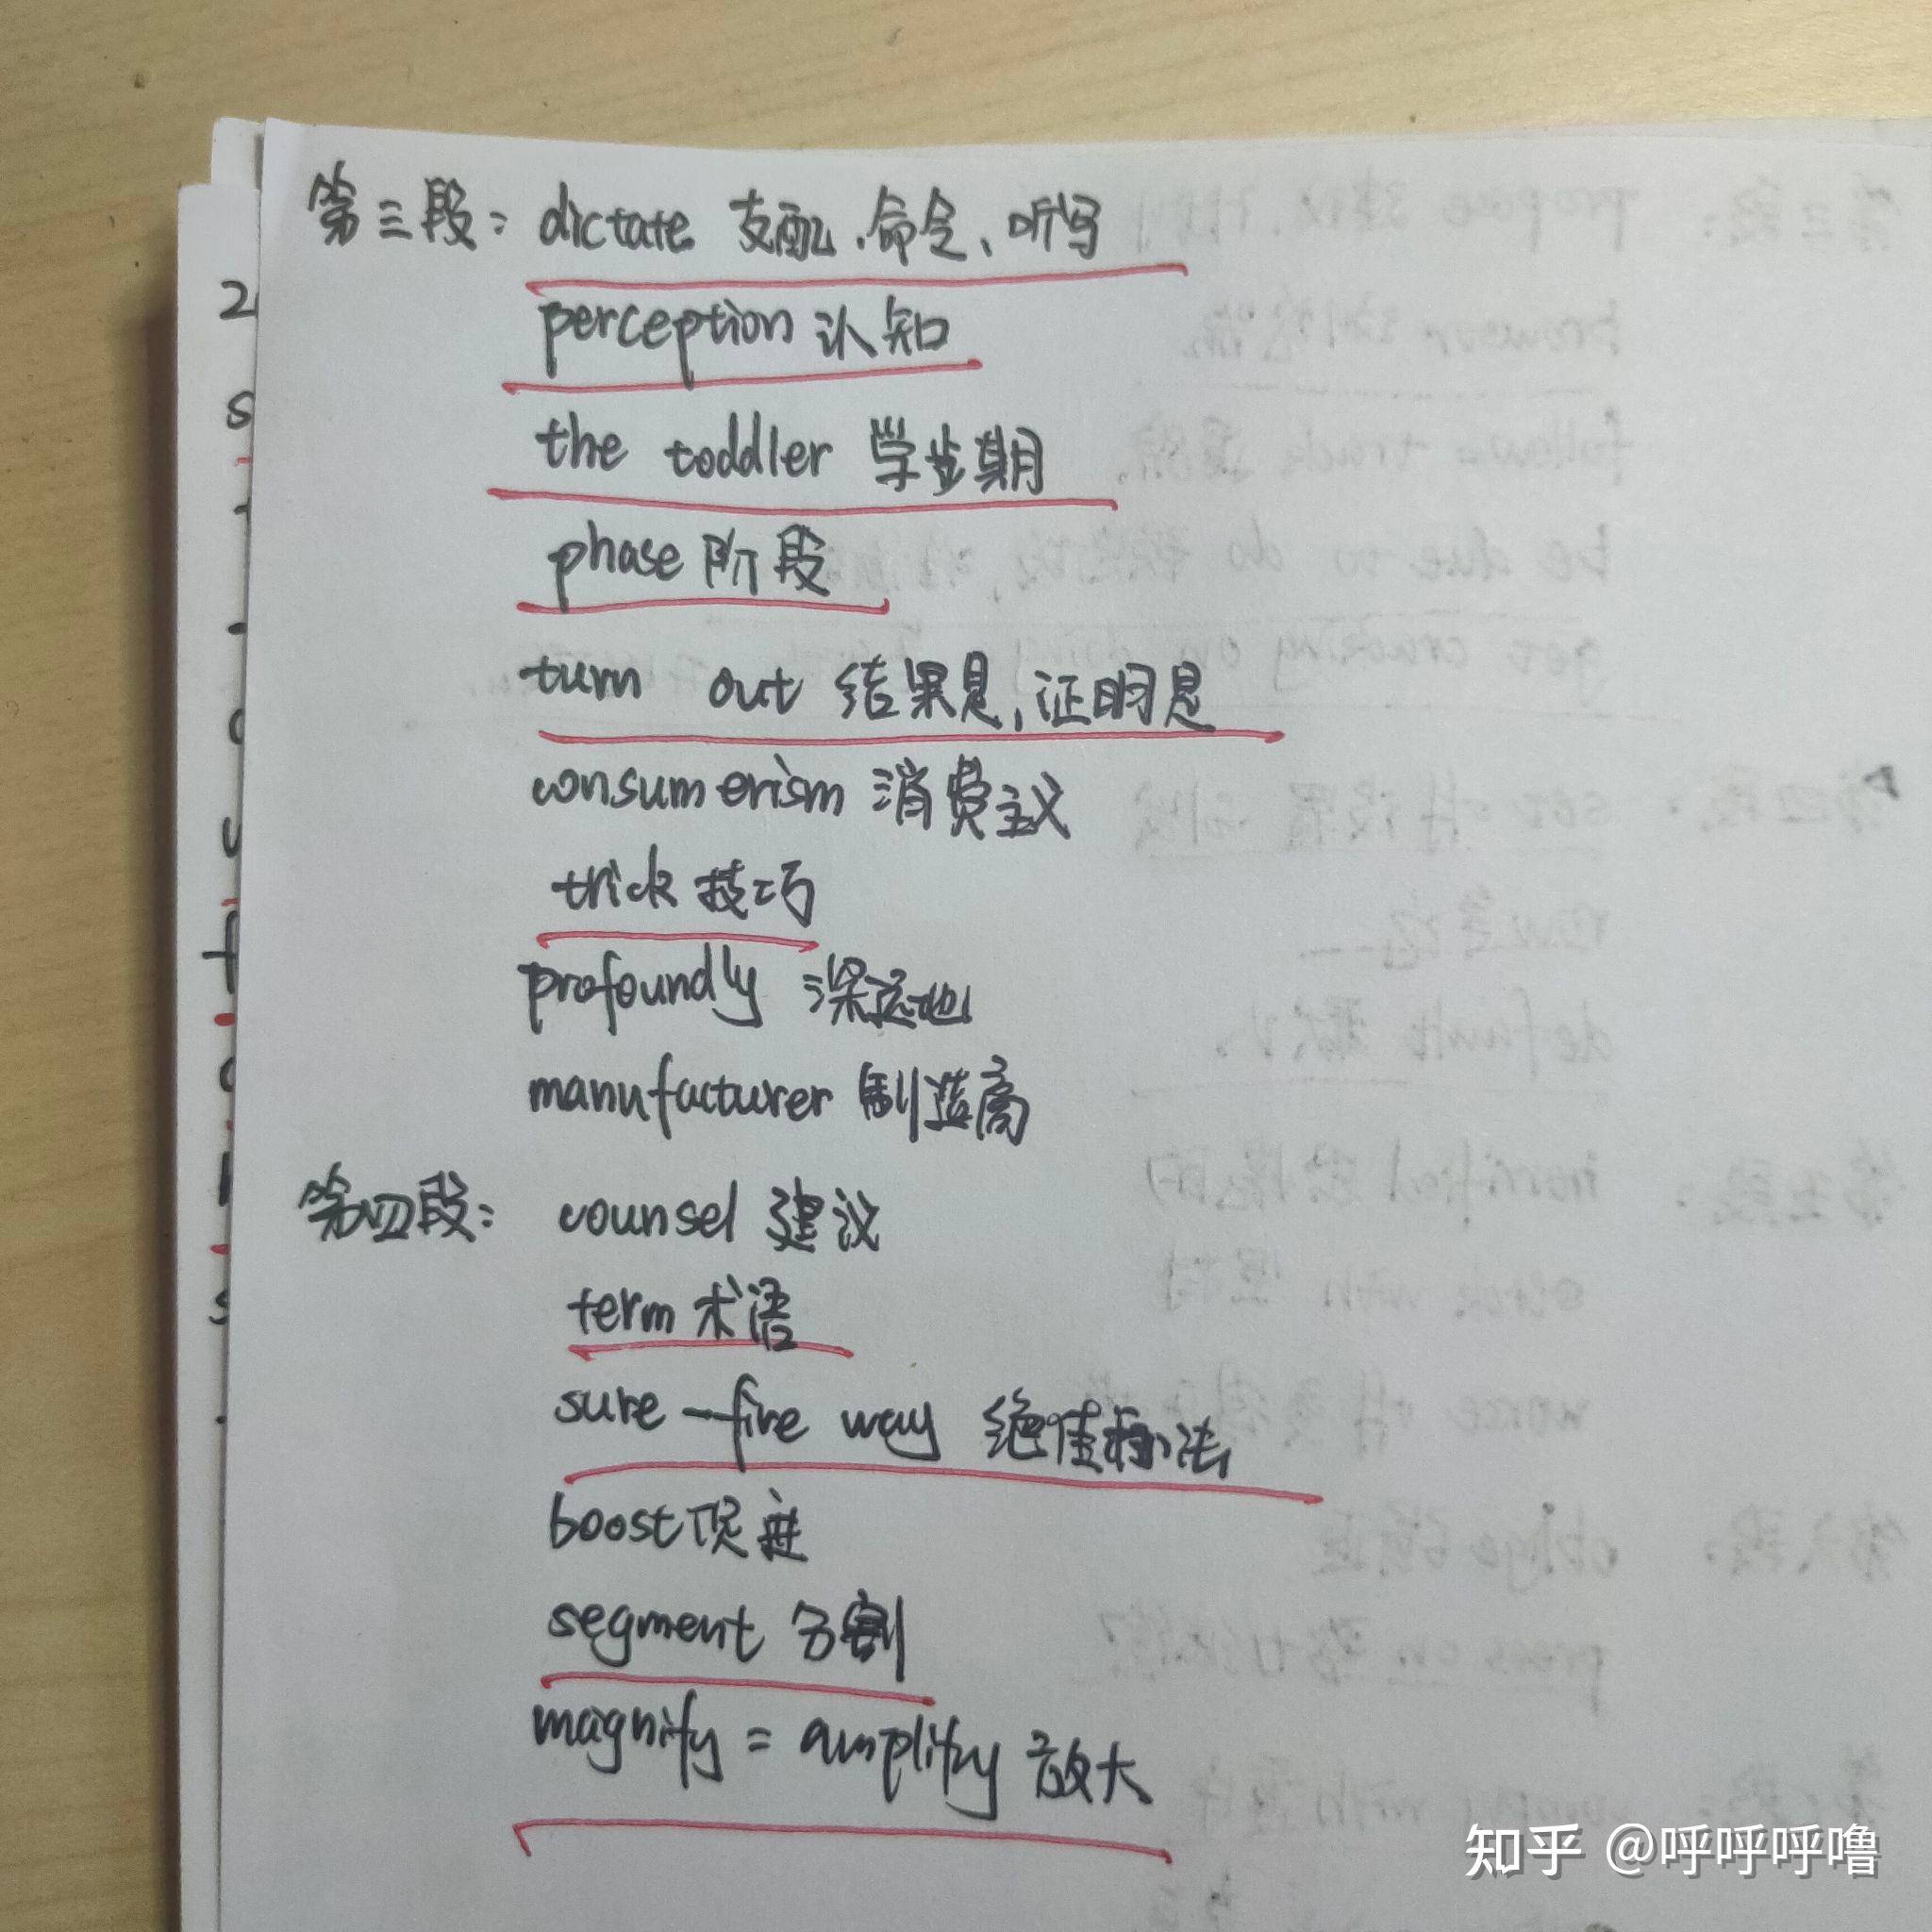 第三段：dictate 支配、命令、听写
perception 认知
the toddler 学步期
phase 阶段
turn out 结果是，证明是
consumerism 消费主义
trick 技巧
profoundly 深远地
manufacturer 制造商
第四段：counsel 建议
term 术语
sure-fire way 绝佳办法
boost 促进
segment 分割
magnify = amplify 放大
知乎 @呼呼呼噜